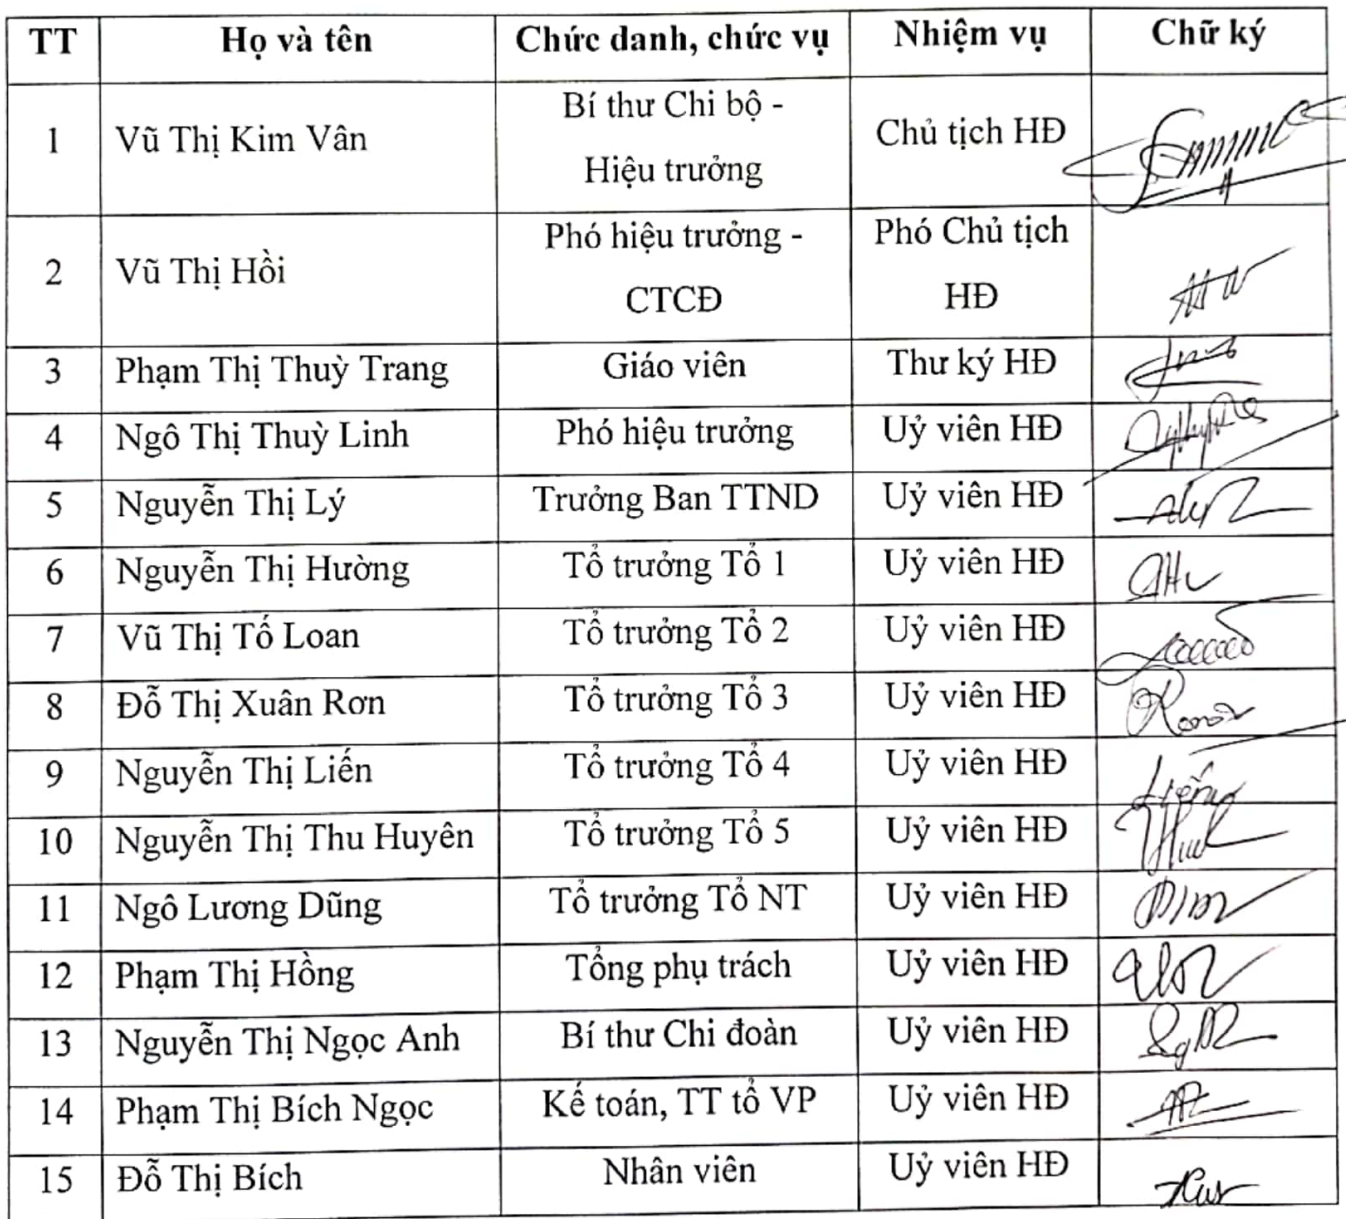 TT Họ và tên Chức danh, chức vụ Nhiệm vụ Chữ ký
1 Vũ Thị Kim Vân Bí thư Chi bộ - Chủ tịch HĐ
Hiệu trưởng
2 Vũ Thị Hồi Phó hiệu trưởng - Phó Chủ tịch
CTCĐ HĐ
3 Phạm Thị Thuỳ Trang Giáo viên Thư ký HĐ
4 Ngô Thị Thuỳ Linh Phó hiệu trưởng Uỷ viên HĐ
5 Nguyễn Thị Lý Trưởng Ban TTND Uỷ viên HĐ
6 Nguyễn Thị Hường Tổ trưởng Tổ 1 Uỷ viên HĐ
7 Vũ Thị Tố Loan Tổ trưởng Tổ 2 Uỷ viên HĐ
8 Đỗ Thị Xuân Rơn Tổ trưởng Tổ 3 Uỷ viên HĐ
9 Nguyễn Thị Liến Tổ trưởng Tổ 4 Uỷ viên HĐ
10 Nguyễn Thị Thu Huyên Tổ trưởng Tổ 5 Uỷ viên HĐ
11 Ngô Lương Dũng Tổ trưởng Tổ NT Uỷ viên HĐ
12 Phạm Thị Hồng Tổng phụ trách Uỷ viên HĐ
13 Nguyễn Thị Ngọc Anh Bí thư Chi đoàn Uỷ viên HĐ
14 Phạm Thị Bích Ngọc Kế toán, TT tổ VP Uỷ viên HĐ
15 Đỗ Thị Bích Nhân viên Uỷ viên HĐ